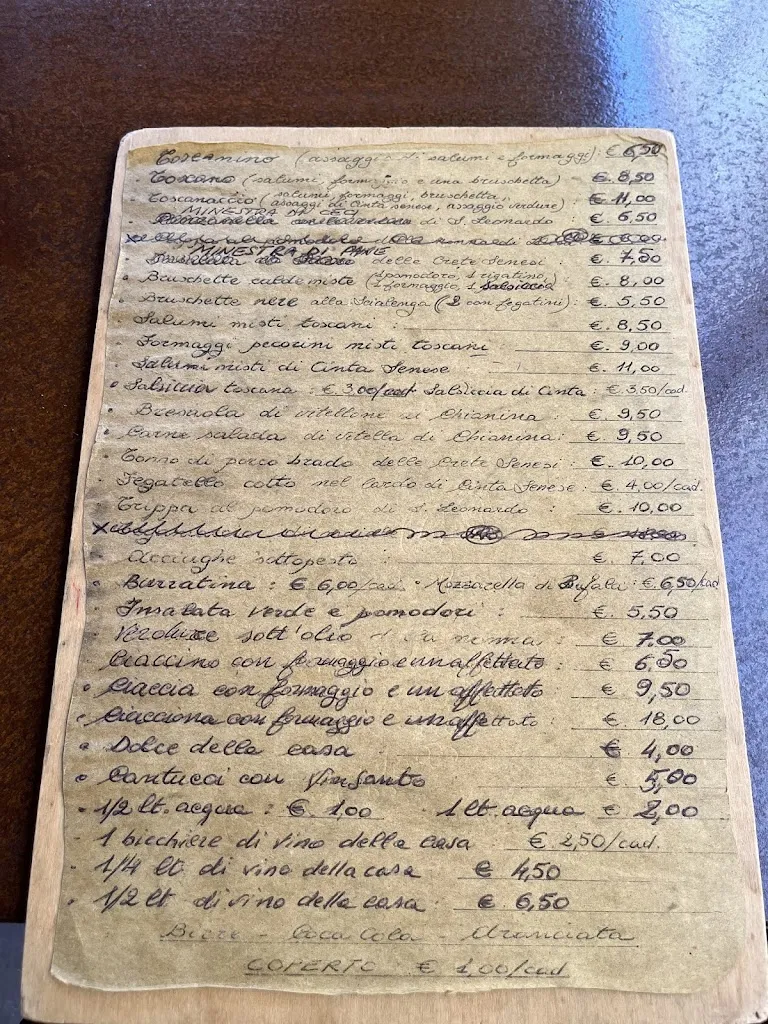 Toscanino (assaggio di salumi e formaggi): € 6,50
• Toscano (salumi, formaggio e una bruschetta) €. 8,50
• Toscanaccio (salumi, formaggi, bruschetta, assaggi di Cinta senese, assaggio verdure) €. 11,00
MINESTRA DI CECI
di S. Leonardo €. 6,50
MINESTRA DI PANE
delle Crete Senesi : €. 7,50
• Bruschette calde miste (1 pomodoro, 1 rigatino, 1 formaggio, 1 salsiccia €. 8,00
Bruschette nere alla Scialenga (2 con fegatini): €. 5,50
• Salumi misti toscani : €. 8,50
• Formaggi pecorini misti toscani : €. 9,00
• Salumi misti di Cinta Senese €. 11,00
• Salsiccia toscana : € 3,00/cad • Salsiccia di Cinta : € 3,50/cad.
• Bresaola di vitellone di Chianina : €. 9,50
• Carne salada di vitella di Chianina : €. 9,50
• Tonno di porco brado delle Crete Senesi : €. 10,00
• Fegatello cotto nel lardo di Cinta Senese : €. 4,00/cad.
• Trippa al pomodoro di S. Leonardo : €. 10,00
• Acciughe sottopesto : €. 7,00
• Burratina : € 6,00/cad. • Mozzarella di Bufala : €. 6,50/cad
• Insalata verde e pomodori : €. 5,50
• Verdure sott'olio della nonna : € 7,00
Ciaccino con formaggio e un affettato : € 6,50
• Ciaccia con formaggio e un affettato : € 9,50
• Ciacciona con formaggio e un affettato : €. 18,00
• Dolce della casa : € 4,00
• Cantucci con Vinsanto €. 5,00
• 1/2 lt. acqua : €. 1,00 • 1 lt. acqua € 2,00
• 1 bicchiere di vino della casa : € 2,50/cad.
• 1/4 lt. di vino della casa € 4,50
• 1/2 lt di vino della casa : €. 6,50
Birre - Coca Cola - Aranciata
COPERTO : € 1,00/cad